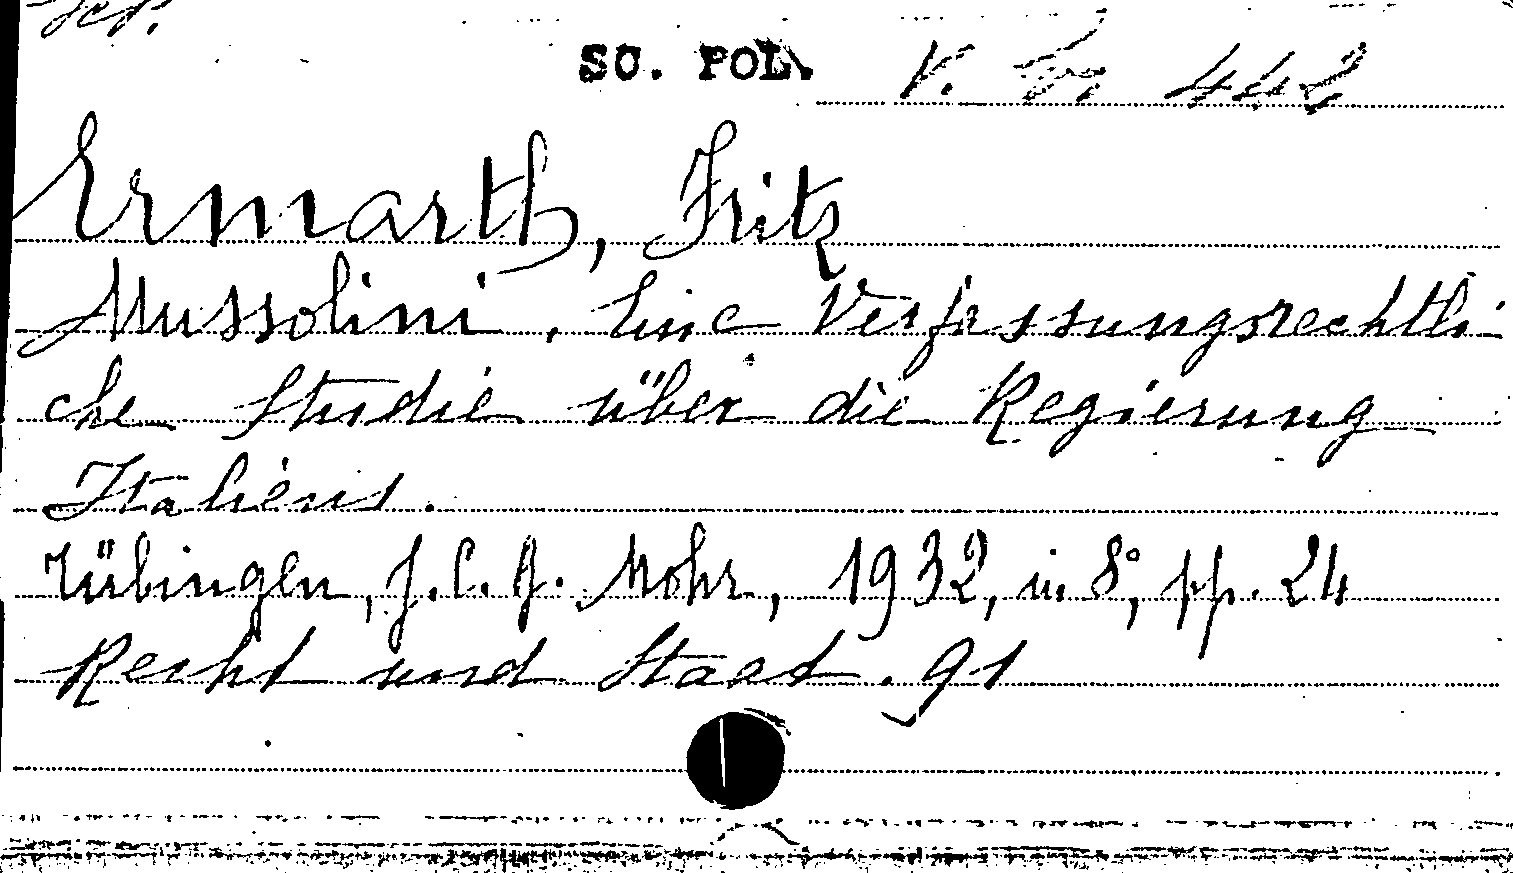 SC. POL. V. VI. 442
Ermarth, Fritz
Mussolini. Eine Verfassungsrechtli-
che Studie über die Regierung
Italiens.
Tübingen, J. C. B. Mohr, 1932, in 8°, pp. 24
Recht und Staat. 91